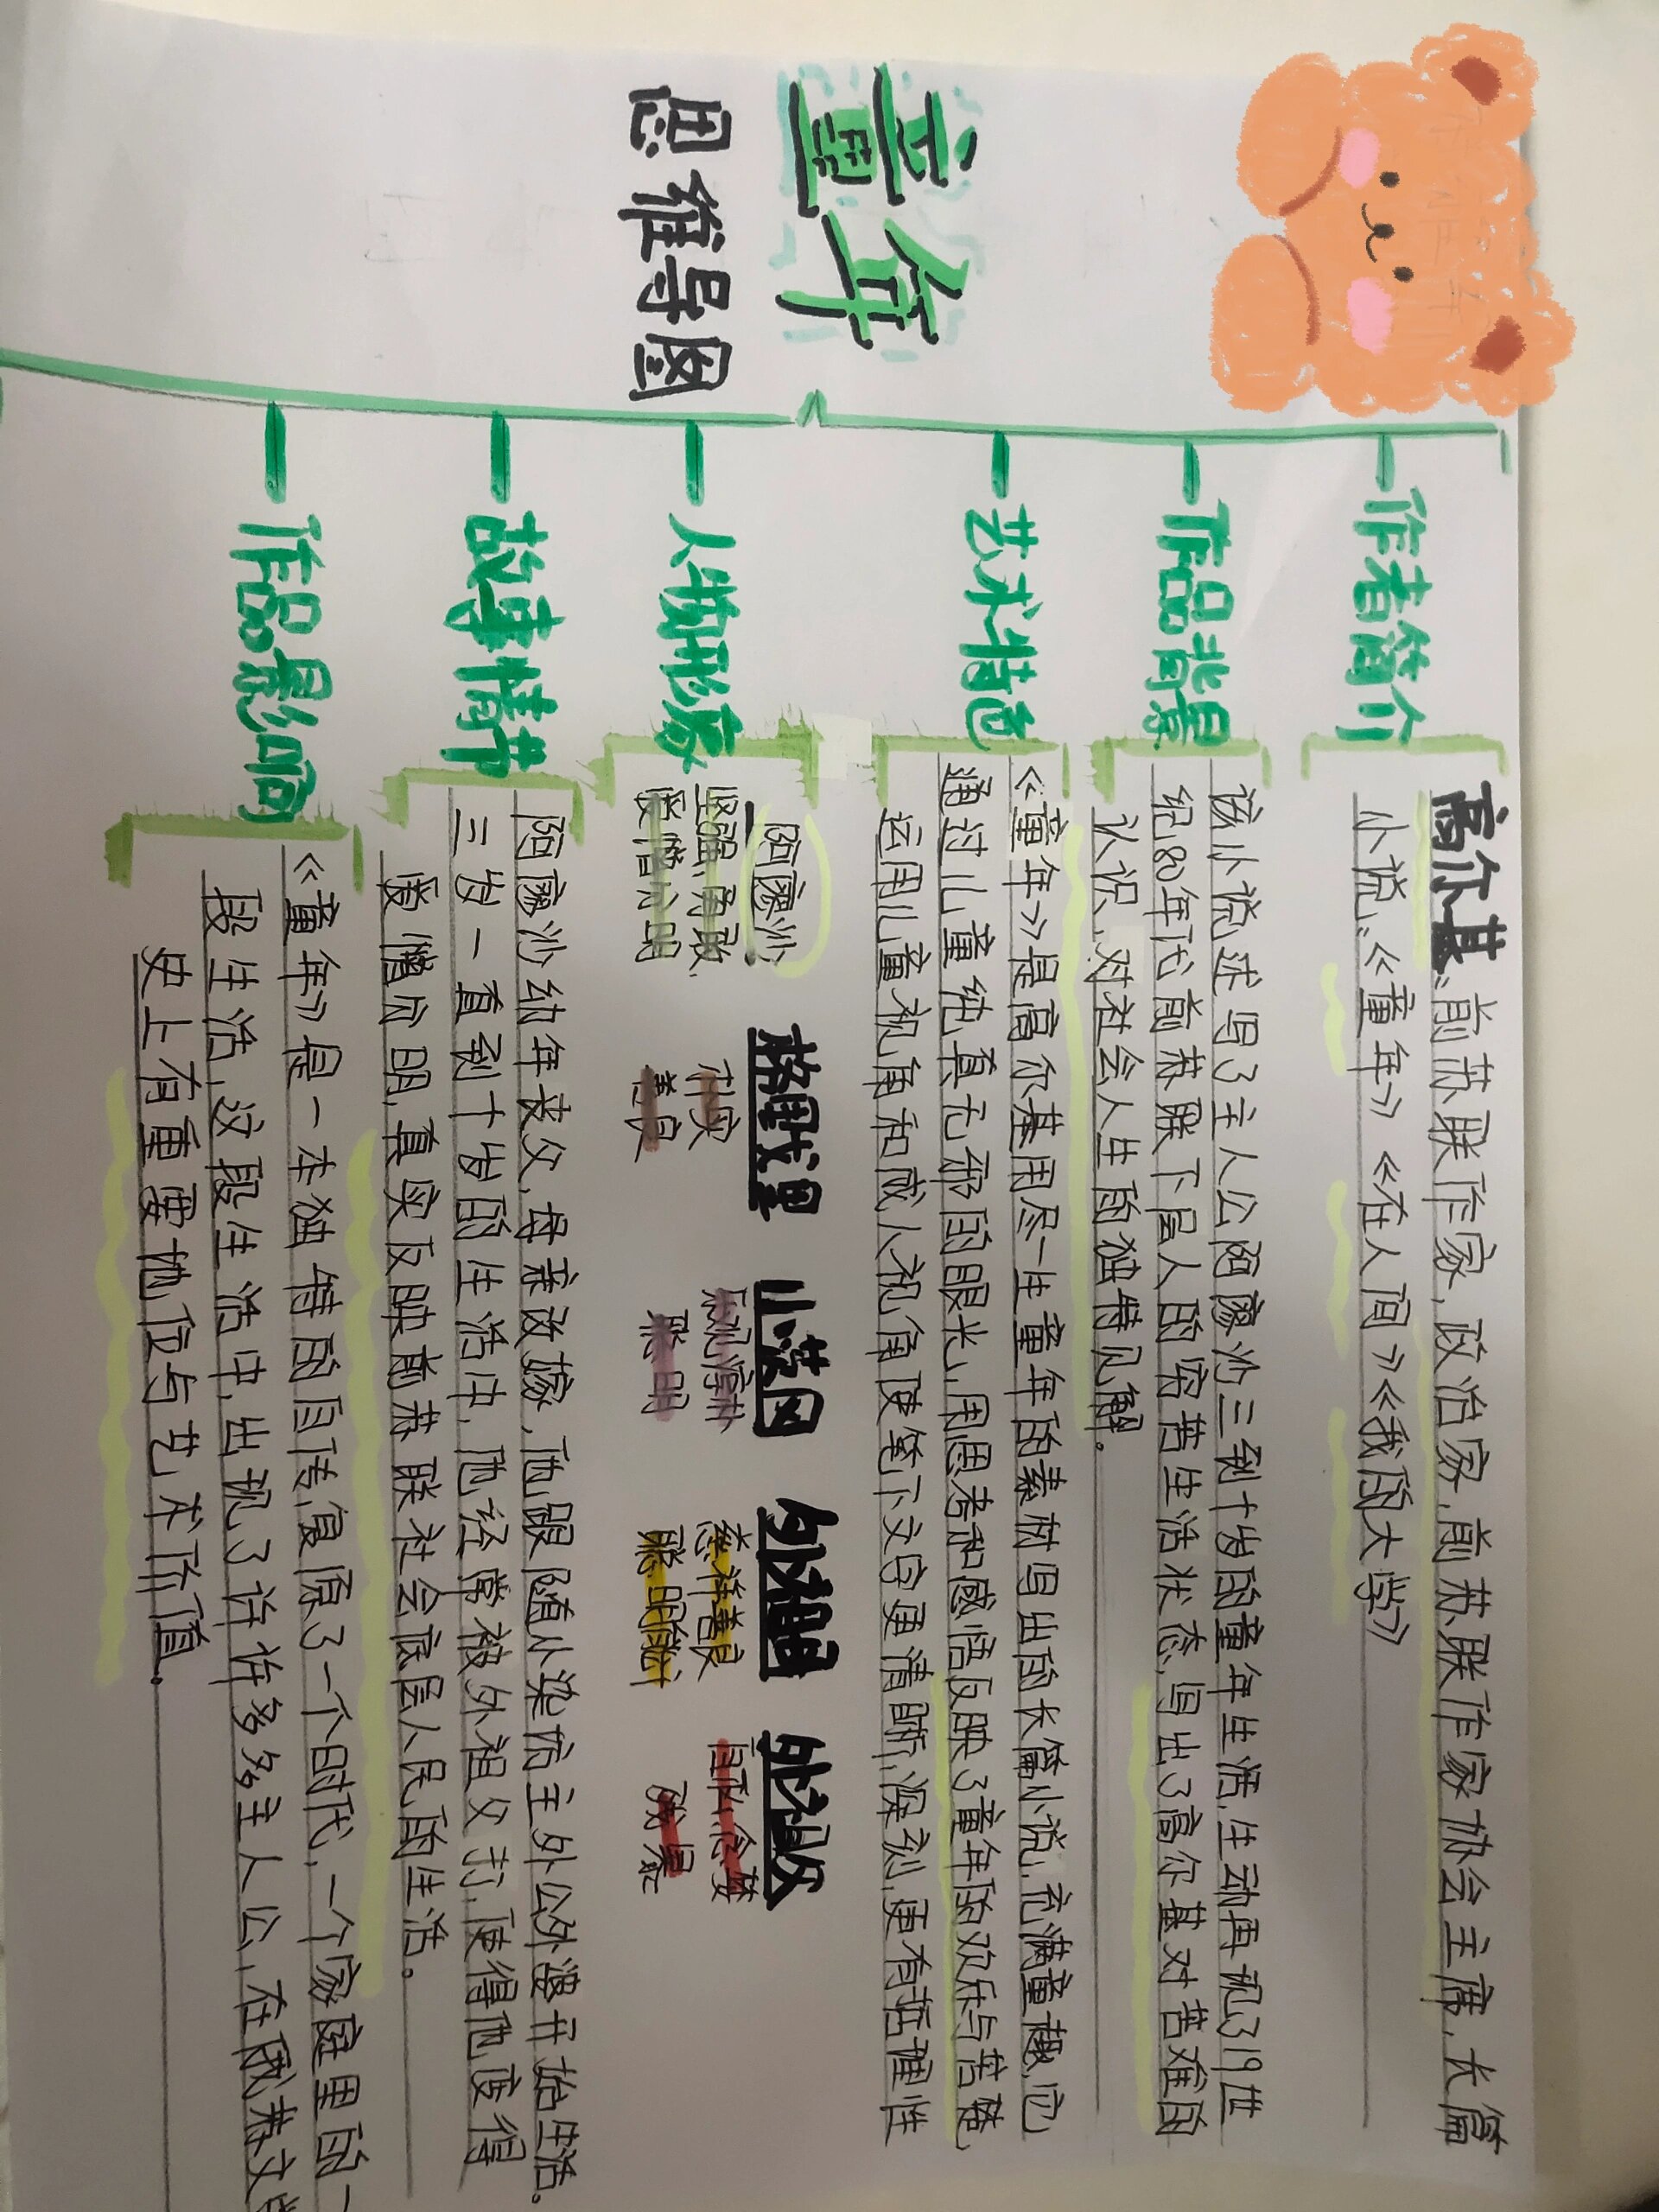 童年
思维导图
作者简介
高尔基:前苏联作家,政治家,前苏联作家协会主席,长篇
小说:《童年》《在人间》《我的大学》
作品背景
该小说述写了主人公阿廖沙三到十岁的童年生活,生动再现了19世
纪80年代前苏联下层人的穷苦生活状态,写出了高尔基对苦难的
认识,对社会人生的独特见解。
艺术特色
《童年》是高尔基用尽一生童年的素材写出的长篇小说,充满童趣,它
通过儿童纯真无邪的眼光,用思考和感悟反映了童年的欢乐与苦难,
运用儿童视角和成人视角使笔下文字更清晰,深刻,更有哲理性
人物形象
阿廖沙
坚强,勇敢,
爱憎分明
格里戈里
朴实
善良
小茨冈
乐观淳朴
聪明
外祖母
慈祥善良
聪明能干
外祖父
自私,贪婪
残暴
故事情节
阿廖沙幼年丧父,母亲改嫁,他跟随从染坊主外公外婆开始生活.
三岁一直到十岁的生活中,他经常被外祖父打,使得他变得
爱憎分明,真实反映前苏联社会底层人民的生活。
作品影响
《童年》是一本独特的自传,复原了一个时代,一个家庭里的一
段生活,这段生活中,出现了许许多多主人公,在俄苏文学
史上有重要地位与艺术价值.